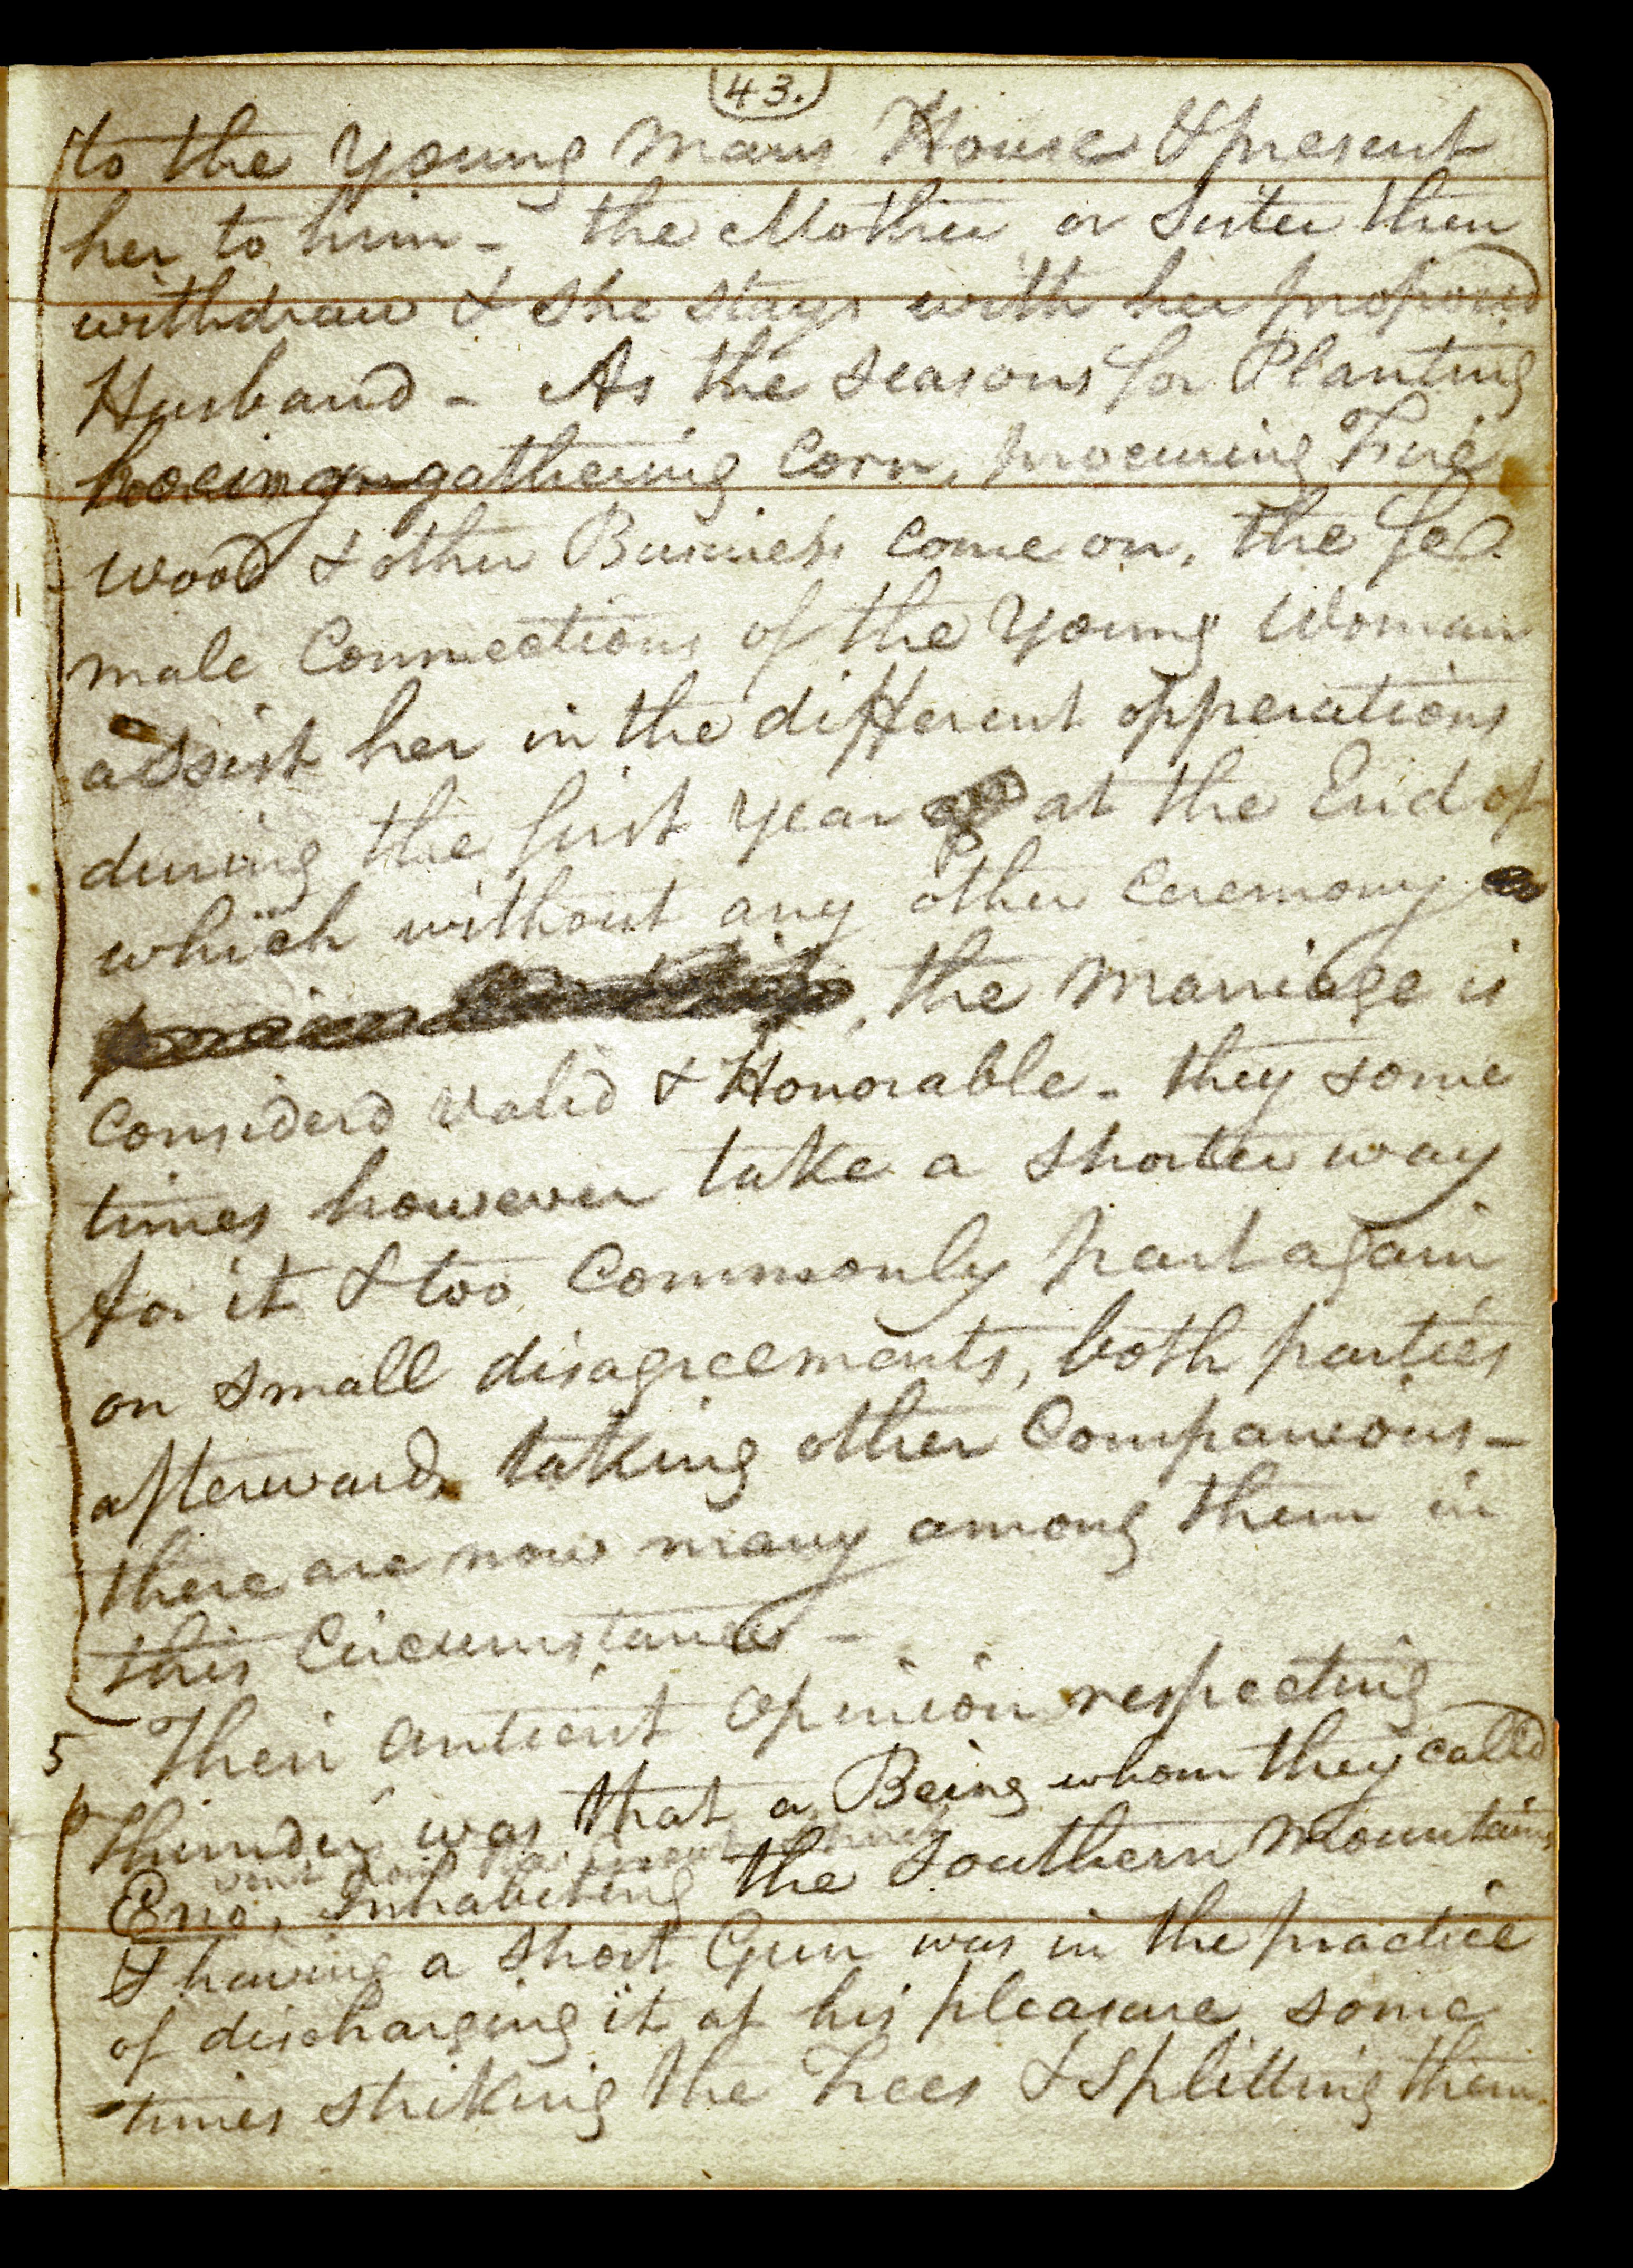 43.
to the Young Mans House & present
her to him - the Mother or Sister then
withdraw & she stays with her proposed
Husband - As the seasons for Planting
hoeing gathering Corn, procuring Fire
wood & other Business come on, the fe
male Connections of the Young Woman
assist her in the different opperations
during the first year at the End of
which without any other ceremony
, the Marriage is
Considerd valid & Honorable - they some
times however take a shorter way
for it & too Commonly part again
on small disagreements, both parties
afterwards taking other Companions -
there are now many among them in
this Circumstance -
5 Their antient Opinion respecting
thunder was that a Being whom they called
Eno, Inhabiting the Southern Mountains
& having a short Gun was in the practice
of discharging it at his pleasure some
times striking the Trees & splitting them